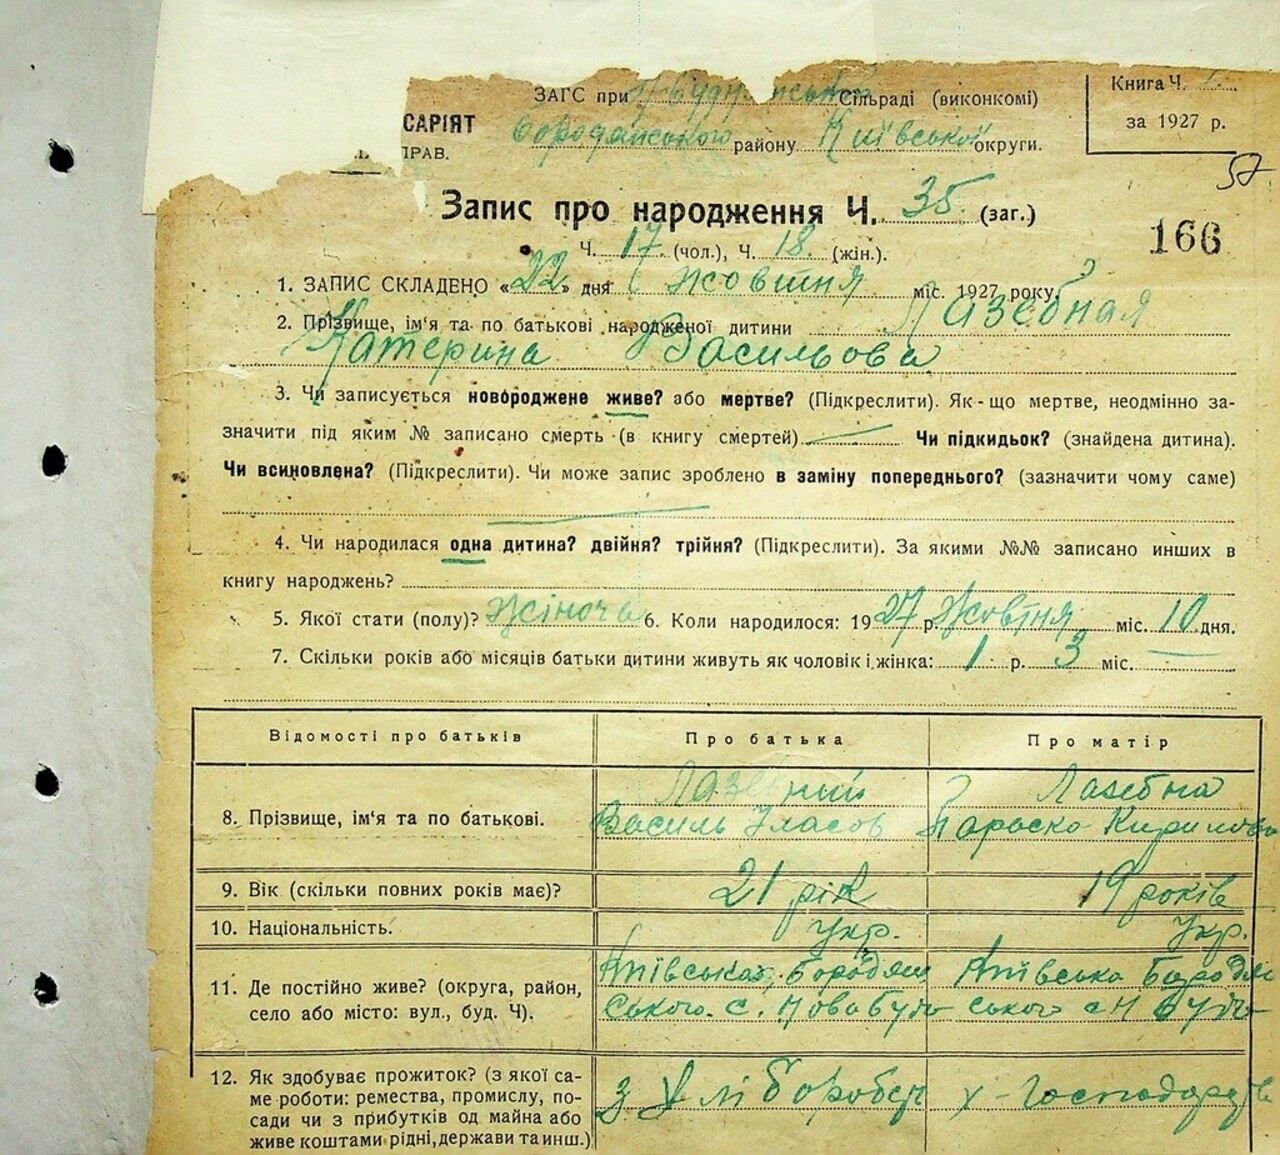 ЗАГС при Сільраді (виконкомі)
Книга Ч.
САРІЯТ
Бородянського району Київської округи.
за 1927 р.
ПРАВ.
57
Запис про народження Ч. 35 (заг.)
166
Ч. 17 (чол.), Ч. 18 (жін.).
1. ЗАПИС СКЛАДЕНО «22» дня Жовтня міс. 1927 року.
2. Прізвище, ім'я та по батькові народженої дитини Лазебная
Катерина Васильова
3. Чи записується новороджене живе? або мертве? (Підкреслити). Як-що мертве, неодмінно за-
значити під яким № записано смерть (в книгу смертей) Чи підкидьок? (знайдена дитина).
Чи всиновлена? (Підкреслити). Чи може запис зроблено в заміну попереднього? (зазначити чому саме)
4. Чи народилася одна дитина? двійня? трійня? (Підкреслити). За якими №№ записано инших в
книгу народжень?
5. Якої стати (полу)? Жіноча 6. Коли народилося: 1927 р. Жовтня міс. 10 дня.
7. Скільки років або місяців батьки дитини живуть як чоловік і жінка: 1 р. 3 міс.
Відомості про батьків Про батька Про матір
8. Прізвище, ім'я та по батькові.
Лазебний
Василь Уласов
Лазебна
Параска Кирилова
9. Вік (скільки повних років має)? 21 рік 19 років
10. Національність. Укр. Укр.
11. Де постійно живе? (округа, район,
село або місто: вул., буд. Ч).
Київська, Бородян
ського с. Нова Буда
Київська Бородян
ського с Н Буда
12. Як здобуває прожиток? (з якої са-
ме роботи: ремества, промислу, по-
сади чи з прибутків од майна або
живе коштами рідні, держави та инш.)
з
х-господарств